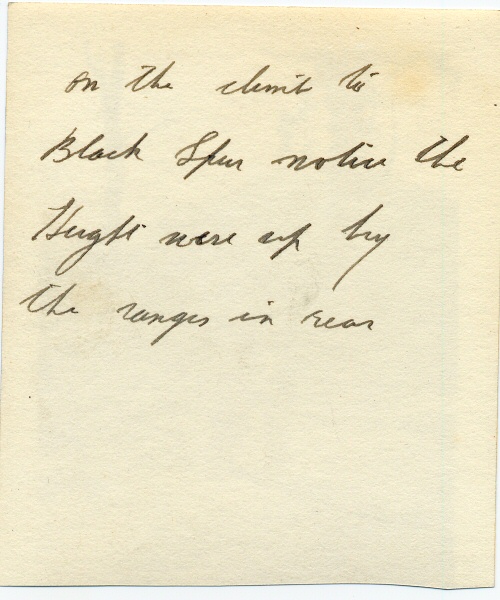 on the climb to
Black Spur notice the
Hught were up by
the ranges in rear